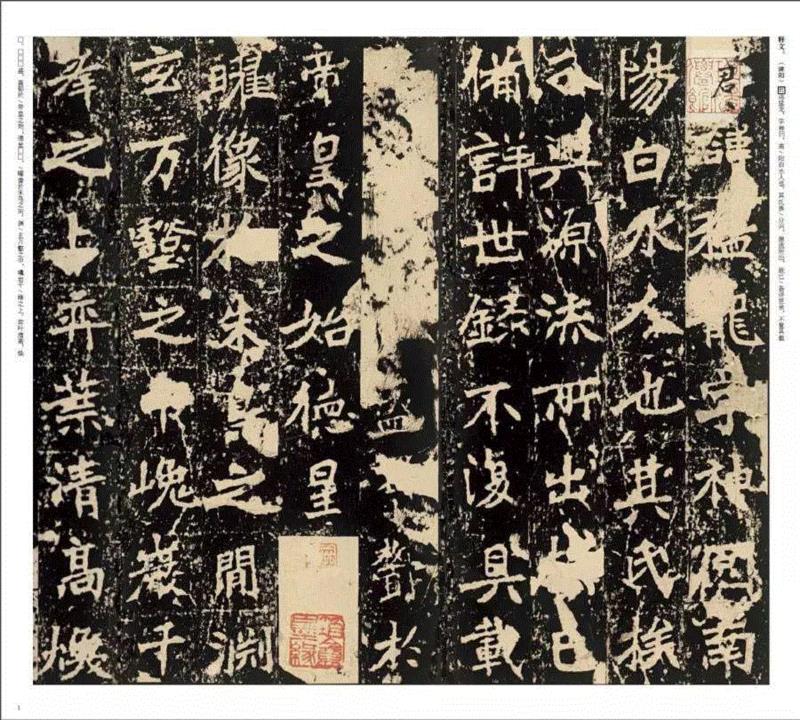 释文：
君諱猛龍字神囧南
陽白水人也其氏族
分興源流所出故已
備詳世錄不復具載
鄧於
帝皇之始德星
曜像於朱鳥之間淵
玄万壑之中巍巖千
峰之上弈葉清高煥